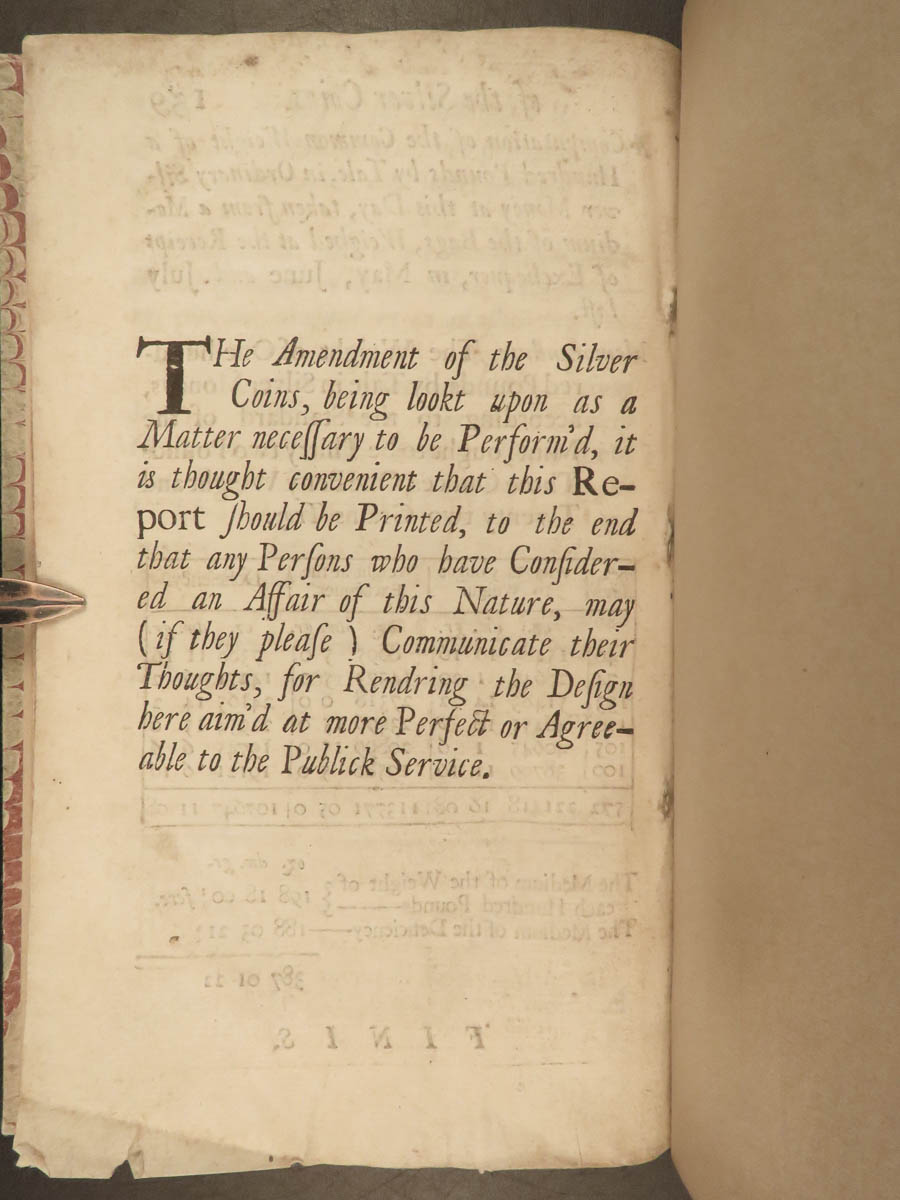 THe Amendment of the Silver
Coins, being lookt upon as a
Matter neceſſary to be Perform'd, it
is thought convenient that this Re-
port ſhould be Printed, to the end
that any Perſons who have Conſider-
ed an Affair of this Nature, may
(if they pleaſe) Communicate their
Thoughts, for Rendring the Deſign
here aim'd at more Perfect or Agree-
able to the Publick Service.